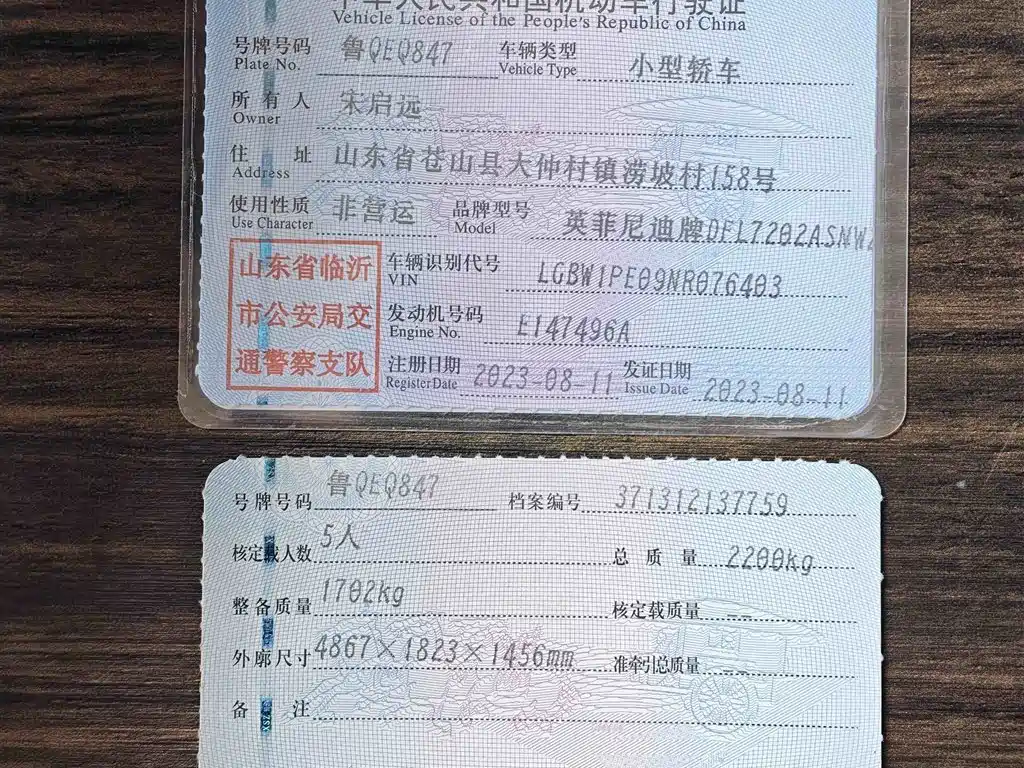 中华人民共和国机动车行驶证
Vehicle License of the People's Republic of China
号牌号码 鲁QEQ847 车辆类型 小型轿车
Plate No. Vehicle Type
所有人 宋启远
Owner
住址 山东省苍山县大仲村镇涝坡村158号
Address
使用性质 非营运 品牌型号 英菲尼迪牌DFL7202ASNW
Use Character Model
山东省临沂
市公安局交
通警察支队
车辆识别代号 LGBW1PE09NR076403
VIN
发动机号码 E147496A
Engine No.
注册日期 2023-08-11 发证日期 2023-08-11
Register Date Issue Date
号牌号码 鲁QEQ847 档案编号 371312137759
核定载人数 5人 总质量 2200kg
整备质量 1702kg 核定载质量 --
外廓尺寸 4867×1823×1456mm 准牵引总质量 --
备注